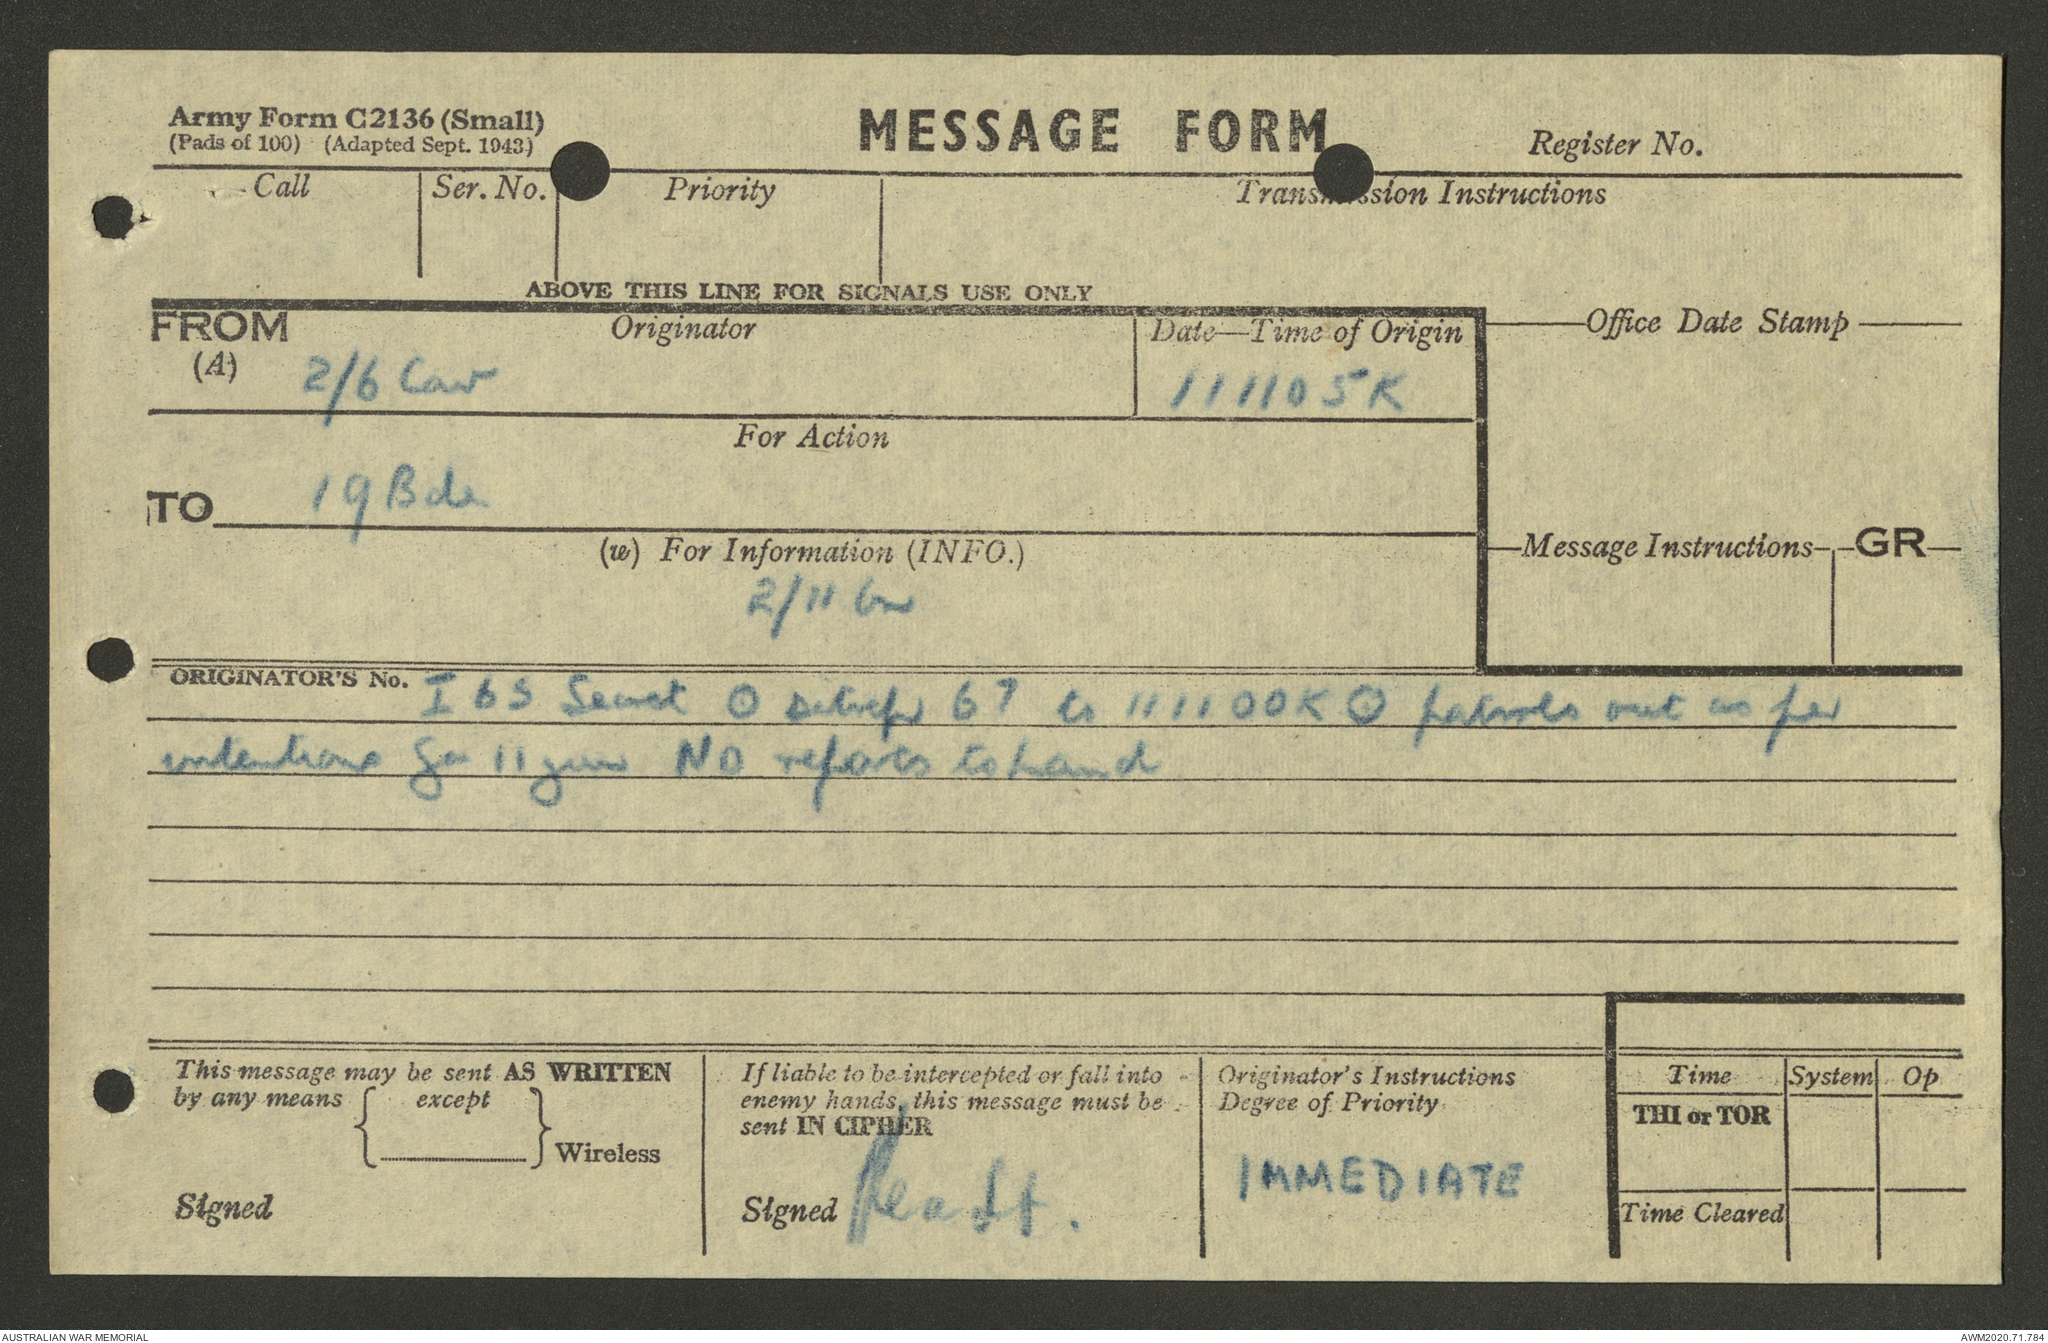 Army Form C2136 (Small)
(Pads of 100) (Adapted Sept. 1943)
MESSAGE FORM
Register No.
Call Ser. No. Priority Transmission Instructions
ABOVE THIS LINE FOR SIGNALS USE ONLY
FROM Originator Date—Time of Origin Office Date Stamp
(A) 2/6 Cav 111105K
For Action
TO 19 Bde
(w) For Information (INFO.) Message Instructions GR
2/11 Bn
ORIGINATOR'S No. I 65 Secret O sitrep 67 to 111100K O patrols out as per
intentions for 11 Jun NO reports to hand
This message may be sent AS WRITTEN
by any means { except } Wireless
Signed
If liable to be intercepted or fall into
enemy hands, this message must be
sent IN CIPHER
Signed
Originator's Instructions
Degree of Priority
IMMEDIATE
Time System Op
THI or TOR
Time Cleared
AUSTRALIAN WAR MEMORIAL AWM2020.71.784